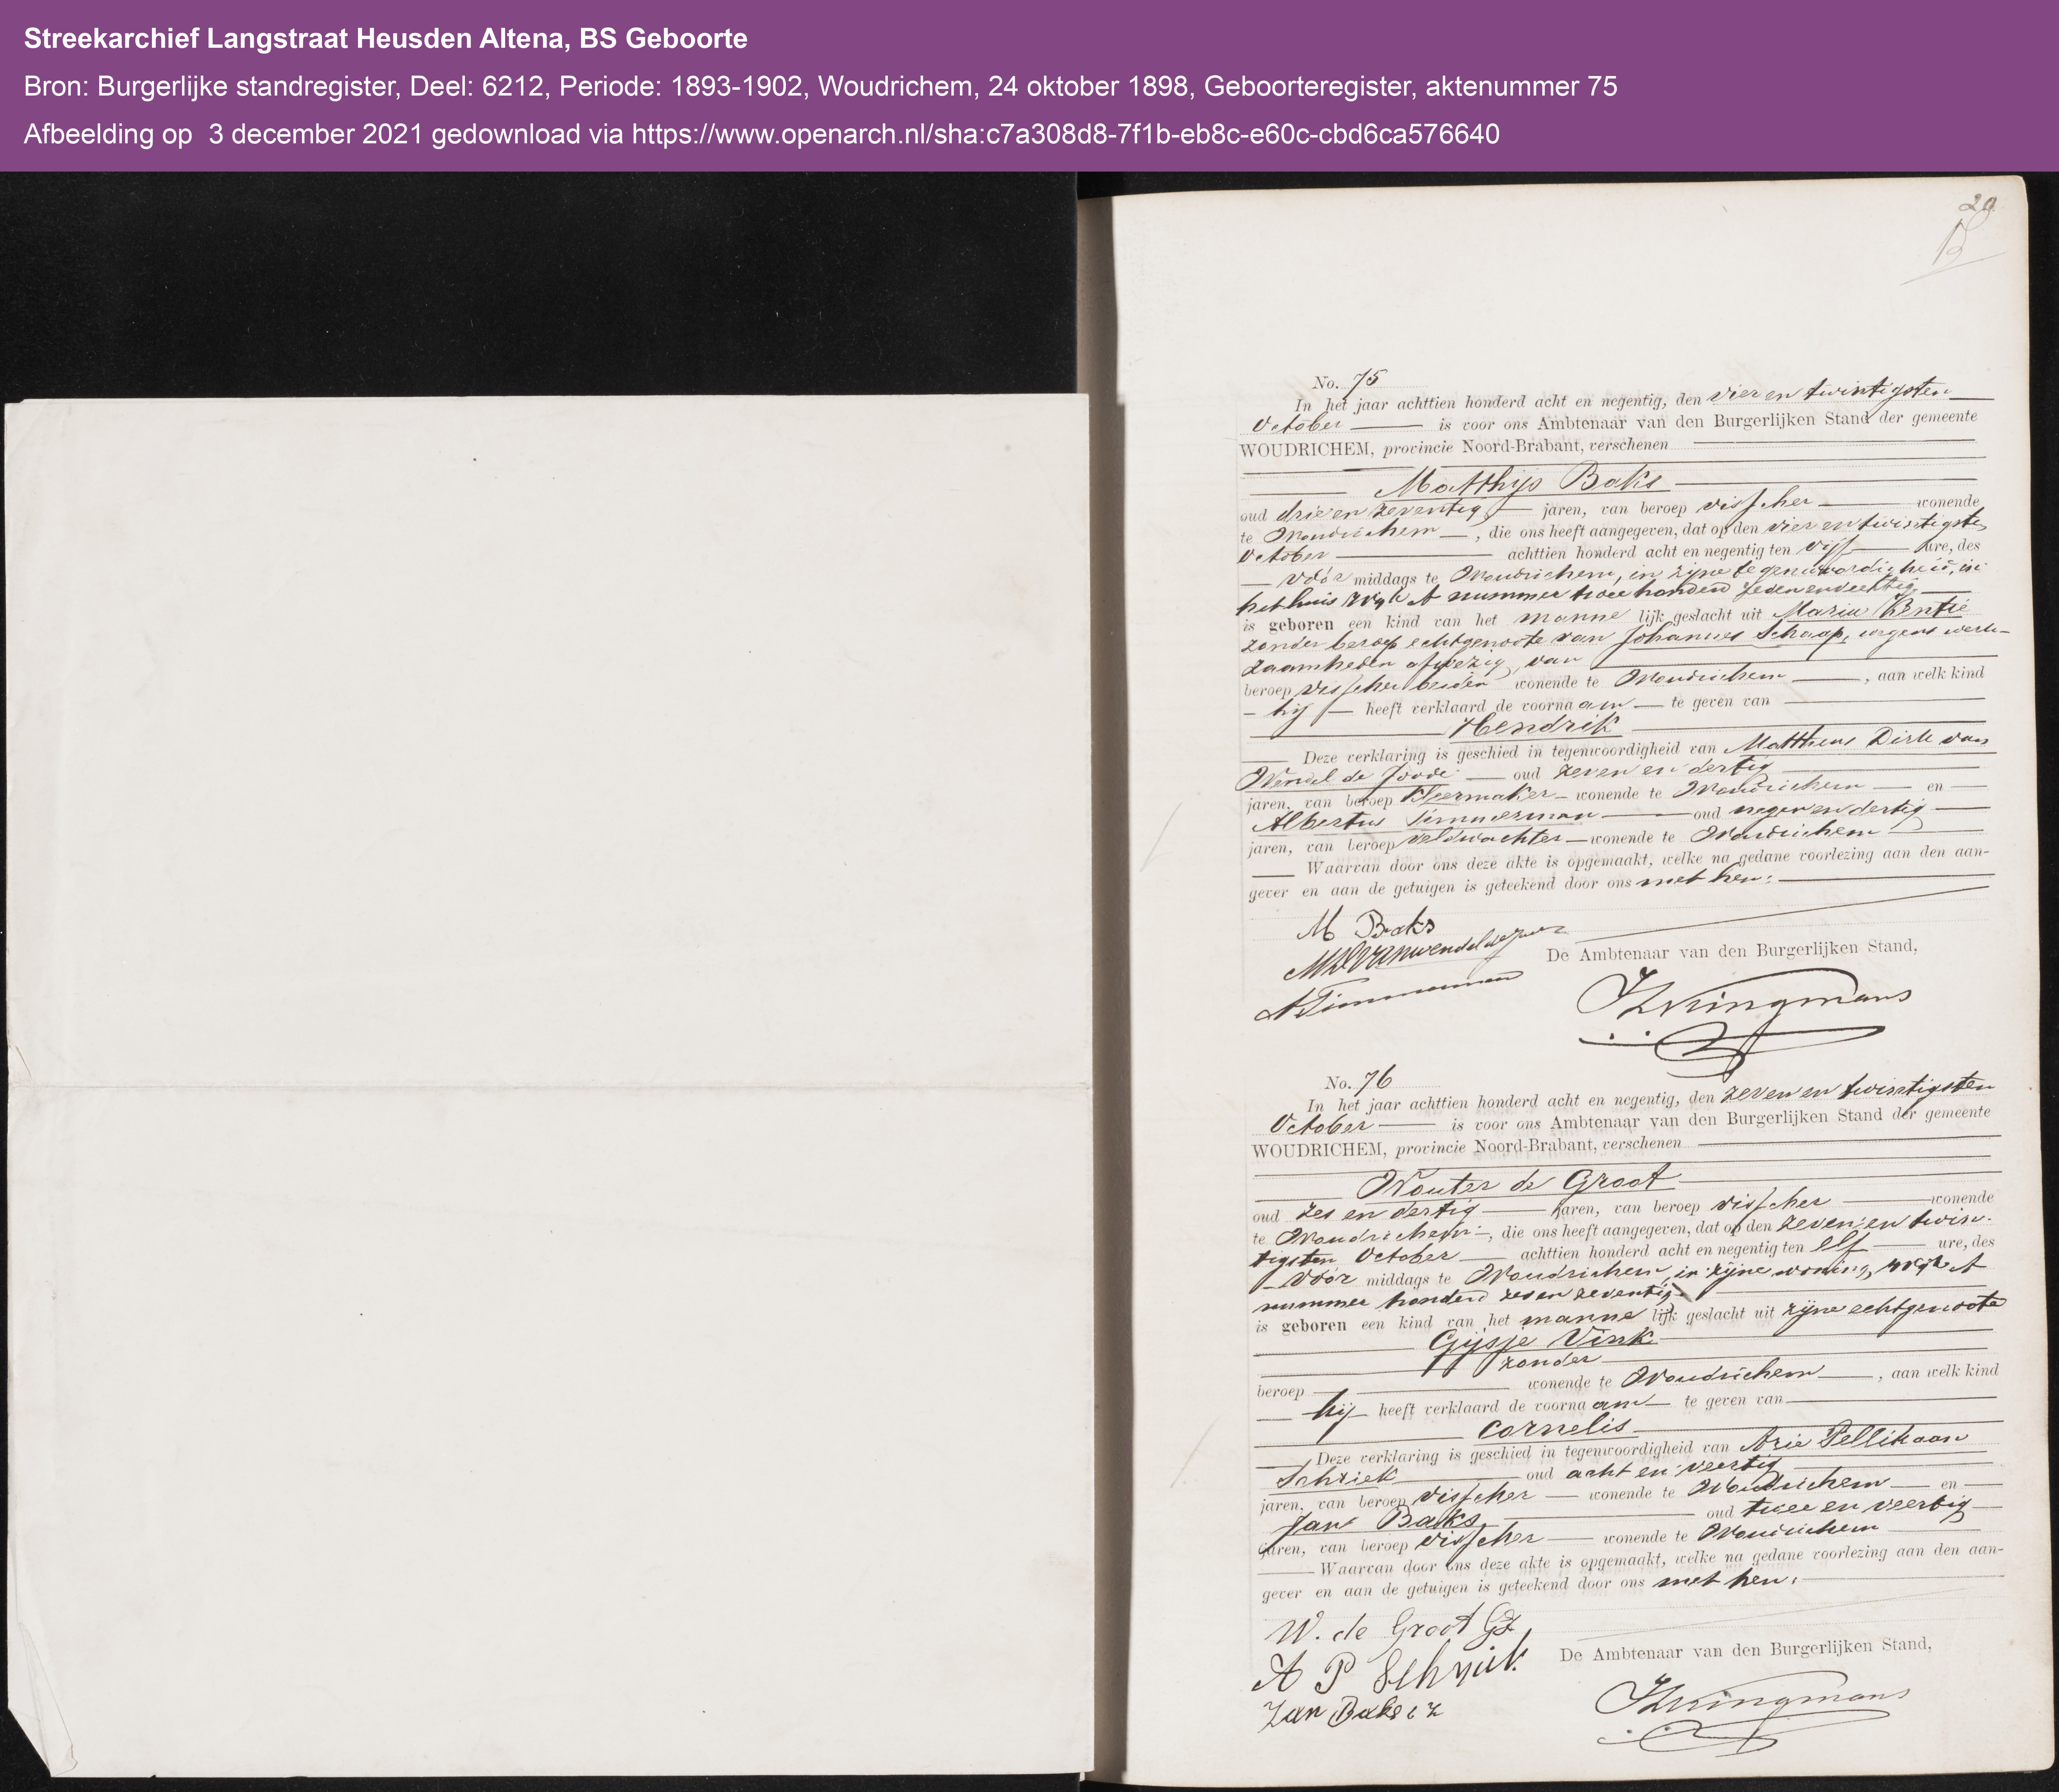 Streekarchief Langstraat Heusden Altena, BS Geboorte
Bron: Burgerlijke standregister, Deel: 6212, Periode: 1893-1902, Woudrichem, 24 oktober 1898, Geboorteregister, aktenummer 75
Afbeelding op 3 december 2021 gedownload via https://www.openarch.nl/sha:c7a308d8-7f1b-eb8c-e60c-cbd6ca576640
No. 75
In het jaar achttien honderd acht en negentig, den vier en twintigsten
October is voor ons Ambtenaar van den Burgerlijken Stand der gemeente
WOUDRICHEM, provincie Noord-Brabant, verschenen
Matthijs Baks
oud drie en zeventig jaren, van beroep visscher wonende
te Woudrichem, die ons heeft aangegeven, dat op den vier en twintigste
October achttien honderd acht en negentig ten vijf ure, des
vóór middags te Woudrichem, in zijne tegenwoordigheid, in
het huis wijk A nummer twee honderd zeven en veertig
is geboren een kind van het manne lijk geslacht uit Maria Kentie
zonder beroep echtgenoote van Johannes Schaap, wegens werk-
zaamheden afwezig, van
beroep visscher beiden wonende te Woudrichem, aan welk kind
hij heeft verklaard de voorna am te geven van
Hendrik
Deze verklaring is geschied in tegenwoordigheid van Mattheus Dirk van
Wendel de Joode oud zeven en dertig
jaren, van beroep kleermaker wonende te Woudrichem en
Albertus Timmerman oud negen en dertig
jaren, van beroep veldwachter wonende te Woudrichem
Waarvan door ons deze akte is opgemaakt, welke na gedane voorlezing aan den aan-
gever en aan de getuigen is geteekend door ons met hen:
M Baks
A Timmerman
De Ambtenaar van den Burgerlijken Stand,
No. 76
In het jaar achttien honderd acht en negentig, den zeven en twintigsten
October is voor ons Ambtenaar van den Burgerlijken Stand der gemeente
WOUDRICHEM, provincie Noord-Brabant, verschenen
Wouter de Groot
oud zes en dertig jaren, van beroep visscher wonende
te Woudrichem, die ons heeft aangegeven, dat op den zeven en twin-
tigsten October achttien honderd acht en negentig ten elf ure, des
vóór middags te Woudrichem, in zijne woning, wijk A
nummer honderd zes en zeventig
is geboren een kind van het manne lijk geslacht uit zijne echtgenoote
Gijsje Vink
zonder
beroep wonende te Woudrichem, aan welk kind
hij heeft verklaard de voorna am te geven van
Cornelis
Deze verklaring is geschied in tegenwoordigheid van Arie Pellikaan
Schriek oud acht en veertig
jaren, van beroep visscher wonende te Woudrichem en
Jan Baks oud twee en veertig
jaren, van beroep visscher wonende te Woudrichem
Waarvan door ons deze akte is opgemaakt, welke na gedane voorlezing aan den aan-
gever en aan de getuigen is geteekend door ons met hen.
W. de Groot Gz
A P Schriek
Jan Baks
De Ambtenaar van den Burgerlijken Stand,